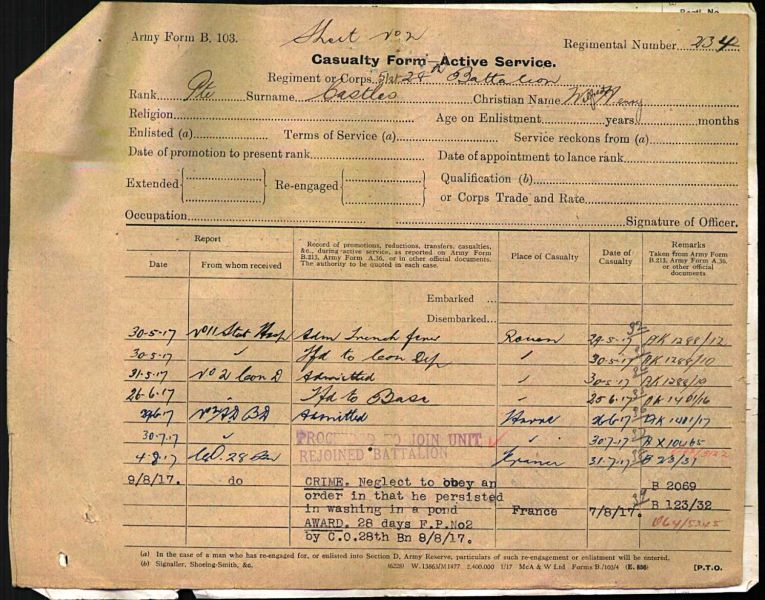 Regtl. No.
Army Form B. 103.
Sheet No 2
Regimental Number 234
Casualty Form—Active Service.
Regiment or Corps 28th Battalion
Rank Pte Surname Castles Christian Name
Religion Age on Enlistment years months
Enlisted (a) Terms of Service (a) Service reckons from (a)
Date of promotion to present rank Date of appointment to lance rank
Extended Re-engaged Qualification (b)
or Corps Trade and Rate
Occupation Signature of Officer.
Report
Date From whom received
Record of promotions, reductions, transfers, casualties,
&c., during active service, as reported on Army Form
B.213, Army Form A.36, or in other official documents.
The authority to be quoted in each case.
Place of Casualty
Date of
Casualty
Remarks
Taken from Army Form
B.213, Army Form A.36,
or other official
documents.
Embarked ...
Disembarked...
30-5-17 No 11 Stat Hosp Adm Trench Rouen 29-5-17 AK 1288/12
30-5-17 " Tfd to Con Dep " 30-5-17 AK 1288/10
31-5-17 No 2 Con D Admitted " 30-5-17 AK 1288/10
26-6-17 " Tfd to Base " 25-6-17 1401/16
Admitted Havre 1401/17
30.7.17 " PROCEEDED TO JOIN UNIT " 30.7.17
4-8-17 C.O. 28 Bn REJOINED BATTALION France 31-7-17 B 23/31
9/8/17. do CRIME. Neglect to obey an B 2069
order in that he persisted B 123/32
in washing in a pond France 7/8/17.
AWARD. 28 days F.P.No2 064/5345
by C.O.28th Bn 8/8/17.
(a) In the case of a man who has re-engaged for, or enlisted into Section D, Army Reserve, particulars of such re-engagement or enlistment will be entered.
(b) Signaller, Shoeing-Smith, &c. (6228) W. 13863/M1477 2,400,000 1/17 McA & W Ltd Forms B./103/4 (E. 836) [P.T.O.